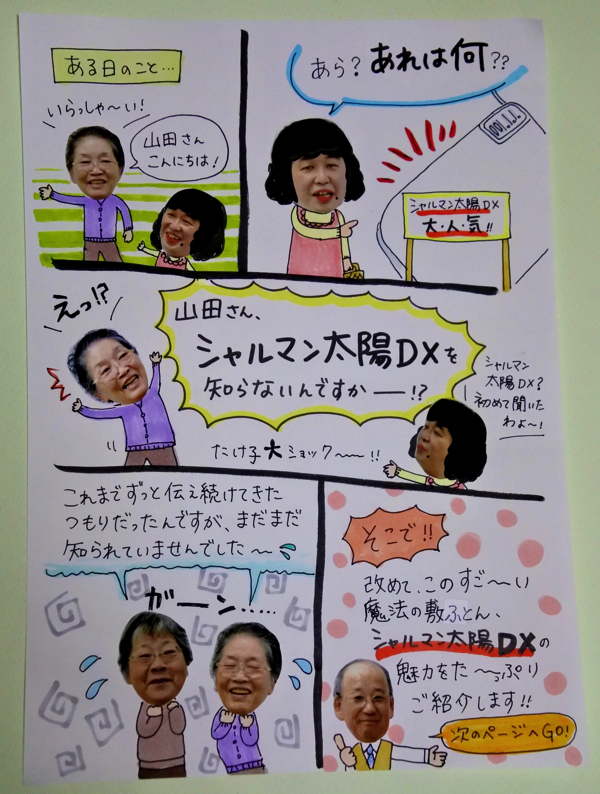 ある日のこと…
いらっしゃ〜い!
山田さん
こんにちは!
あら?あれは何??
シャルマン太陽DX
大・人・気!!
えっ!?
山田さん、
シャルマン太陽DXを
知らないんですかー!?
シャルマン
太陽DX?
初めて聞いた
わよ〜!
たけ子大ショック〜〜!!
これまでずっと伝え続けてきた
つもりだったんですが、まだまだ
知られていませんでした〜
ガーン……
そこで!!
改めて、このすご〜い
魔法の敷ふとん、
シャルマン太陽DXの
魅力をた〜っぷり
ご紹介します!!
次のページへGO!